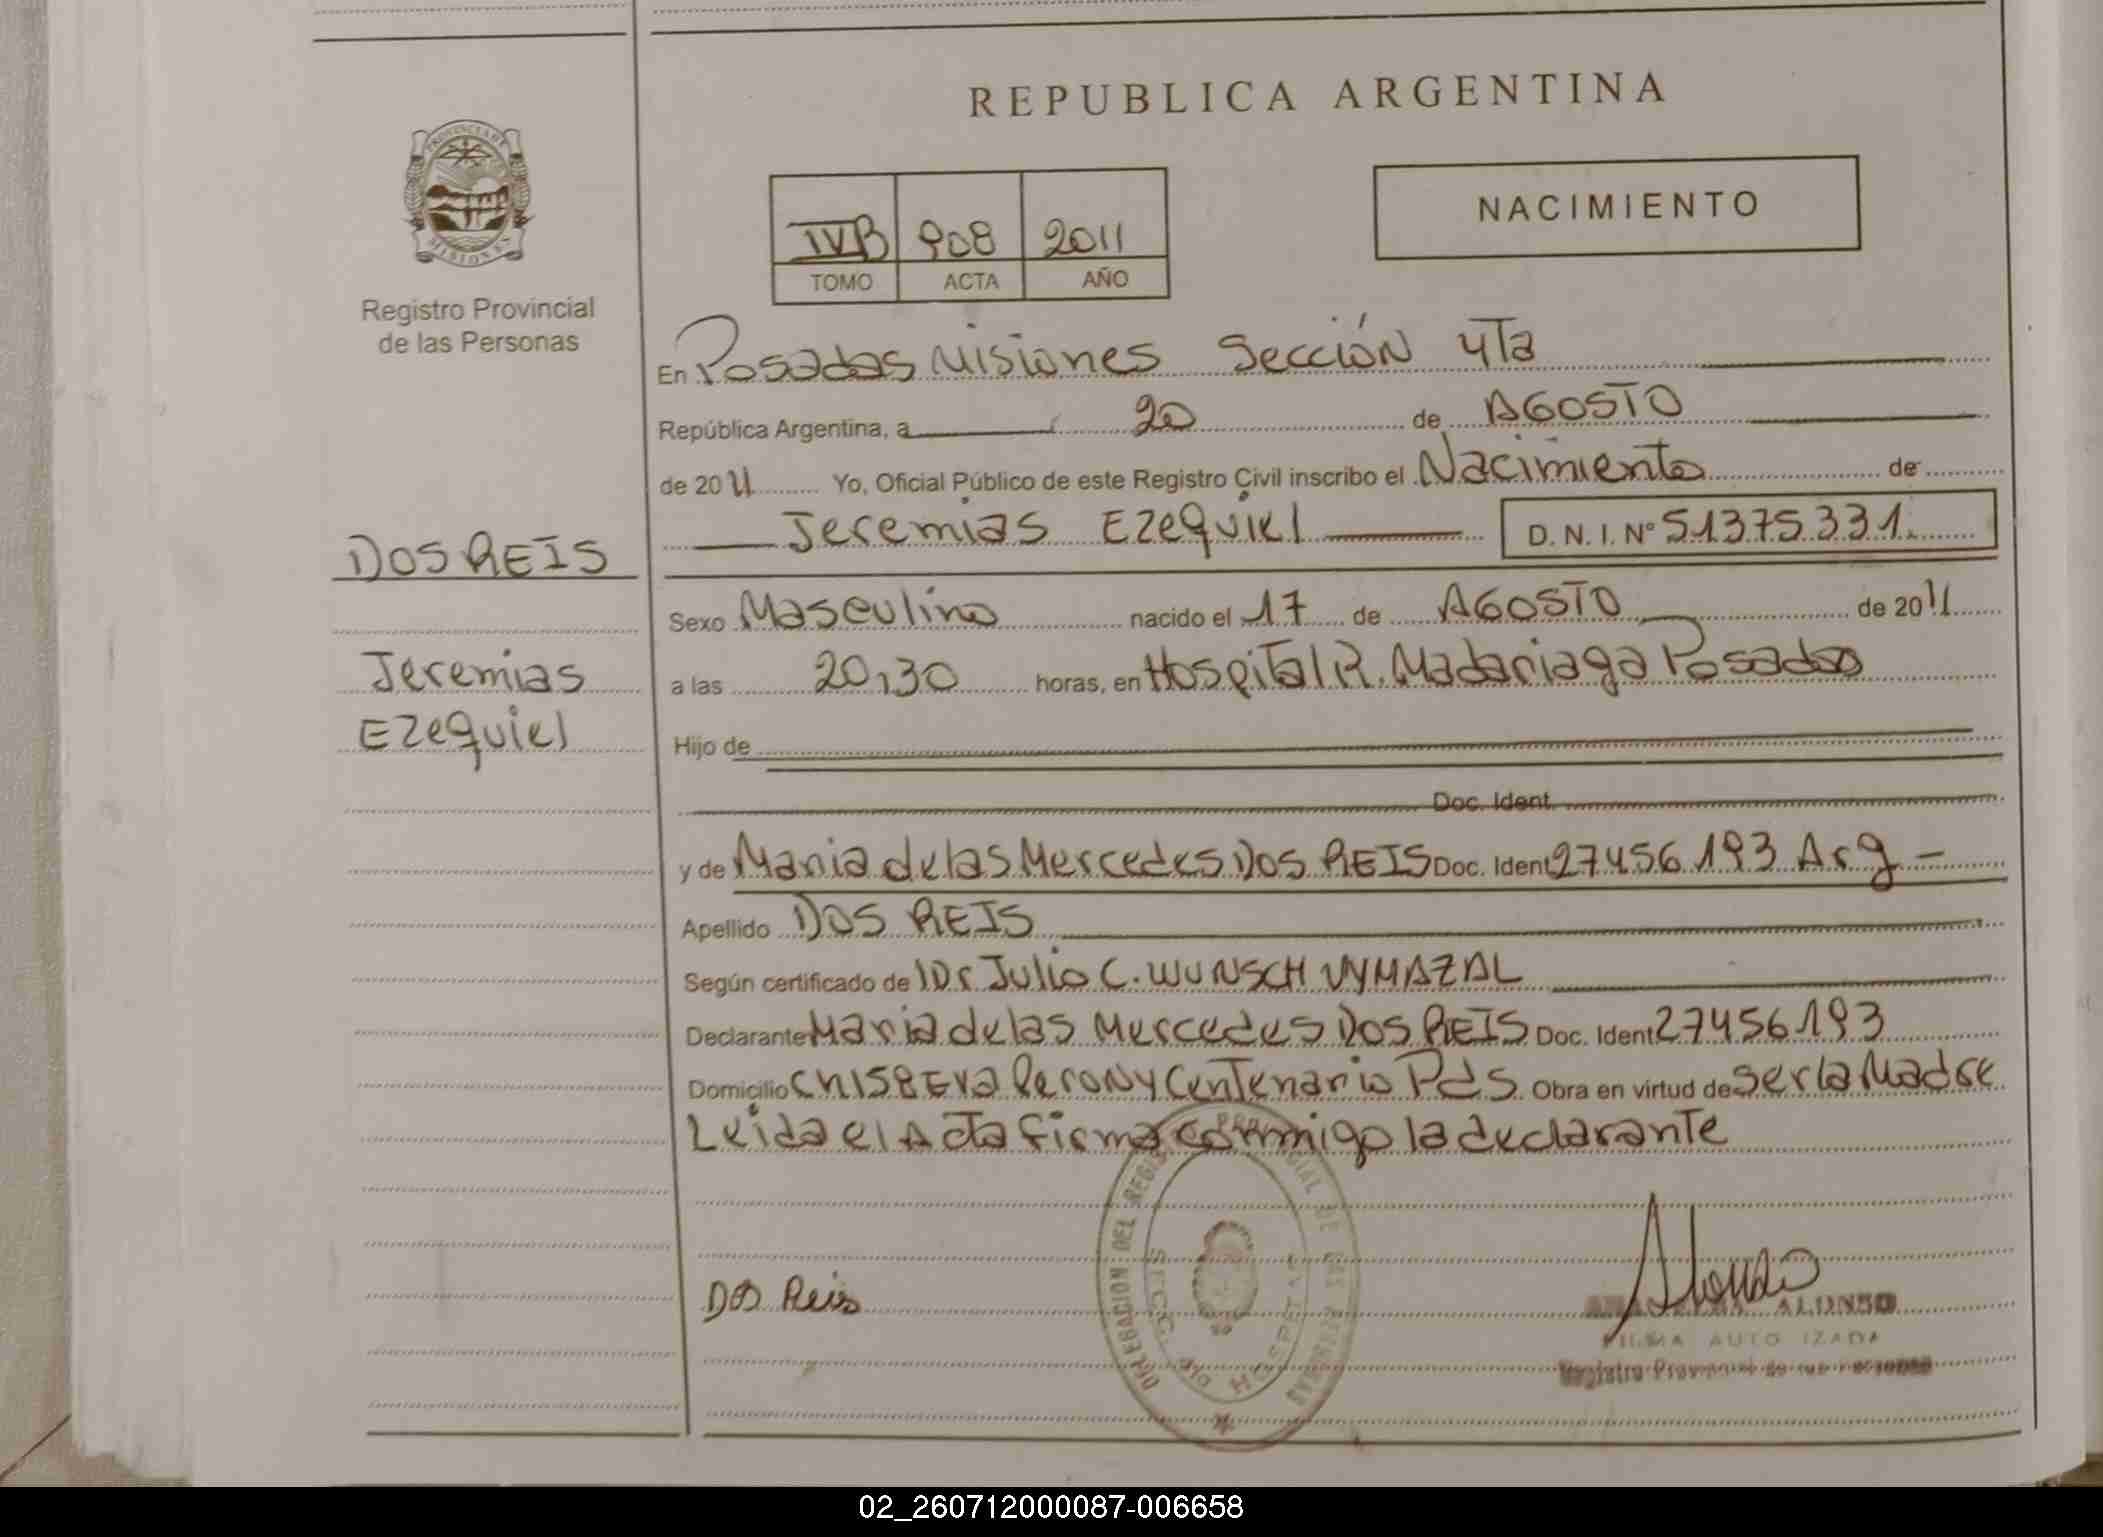 REPUBLICA ARGENTINA
PROVINCIA DE
MISIONES
Registro Provincial
de las Personas
IVB 908 2011
TOMO ACTA AÑO
NACIMIENTO
En Posadas Misiones Sección 4Ta
República Argentina, a 20 de AGOSTO
de 2011 Yo, Oficial Público de este Registro Civil inscribo el Nacimiento de
Jeremias Ezequiel D. N. I. Nº 51375331
DOS REIS
Jeremias
Ezequiel
Sexo Masculino nacido el 17 de AGOSTO de 2011
a las 20,30 horas, en Hospital R. Madariaga Posadas
Hijo de
Doc. Ident.
y de Maria de las Mercedes DOS REIS Doc. Ident 27456193 Arg -
Apellido DOS REIS
Según certificado de Dr Julio C. WUNSCH VYMAZAL
Declarante Maria de las Mercedes DOS REIS Doc. Ident 27456193
Domicilio CH158 Eva Peron y Centenario Pds. Obra en virtud de ser la Madre
Leida el Acta firma conmigo la declarante
Dos Reis
DELEGACION DEL REGISTRO PROVINCIAL DE LAS PERSONAS
SECC. HOSPITAL
ALONSO
FIRMA AUTORIZADA
Registro Provincial de las Personas
02_260712000087-006658